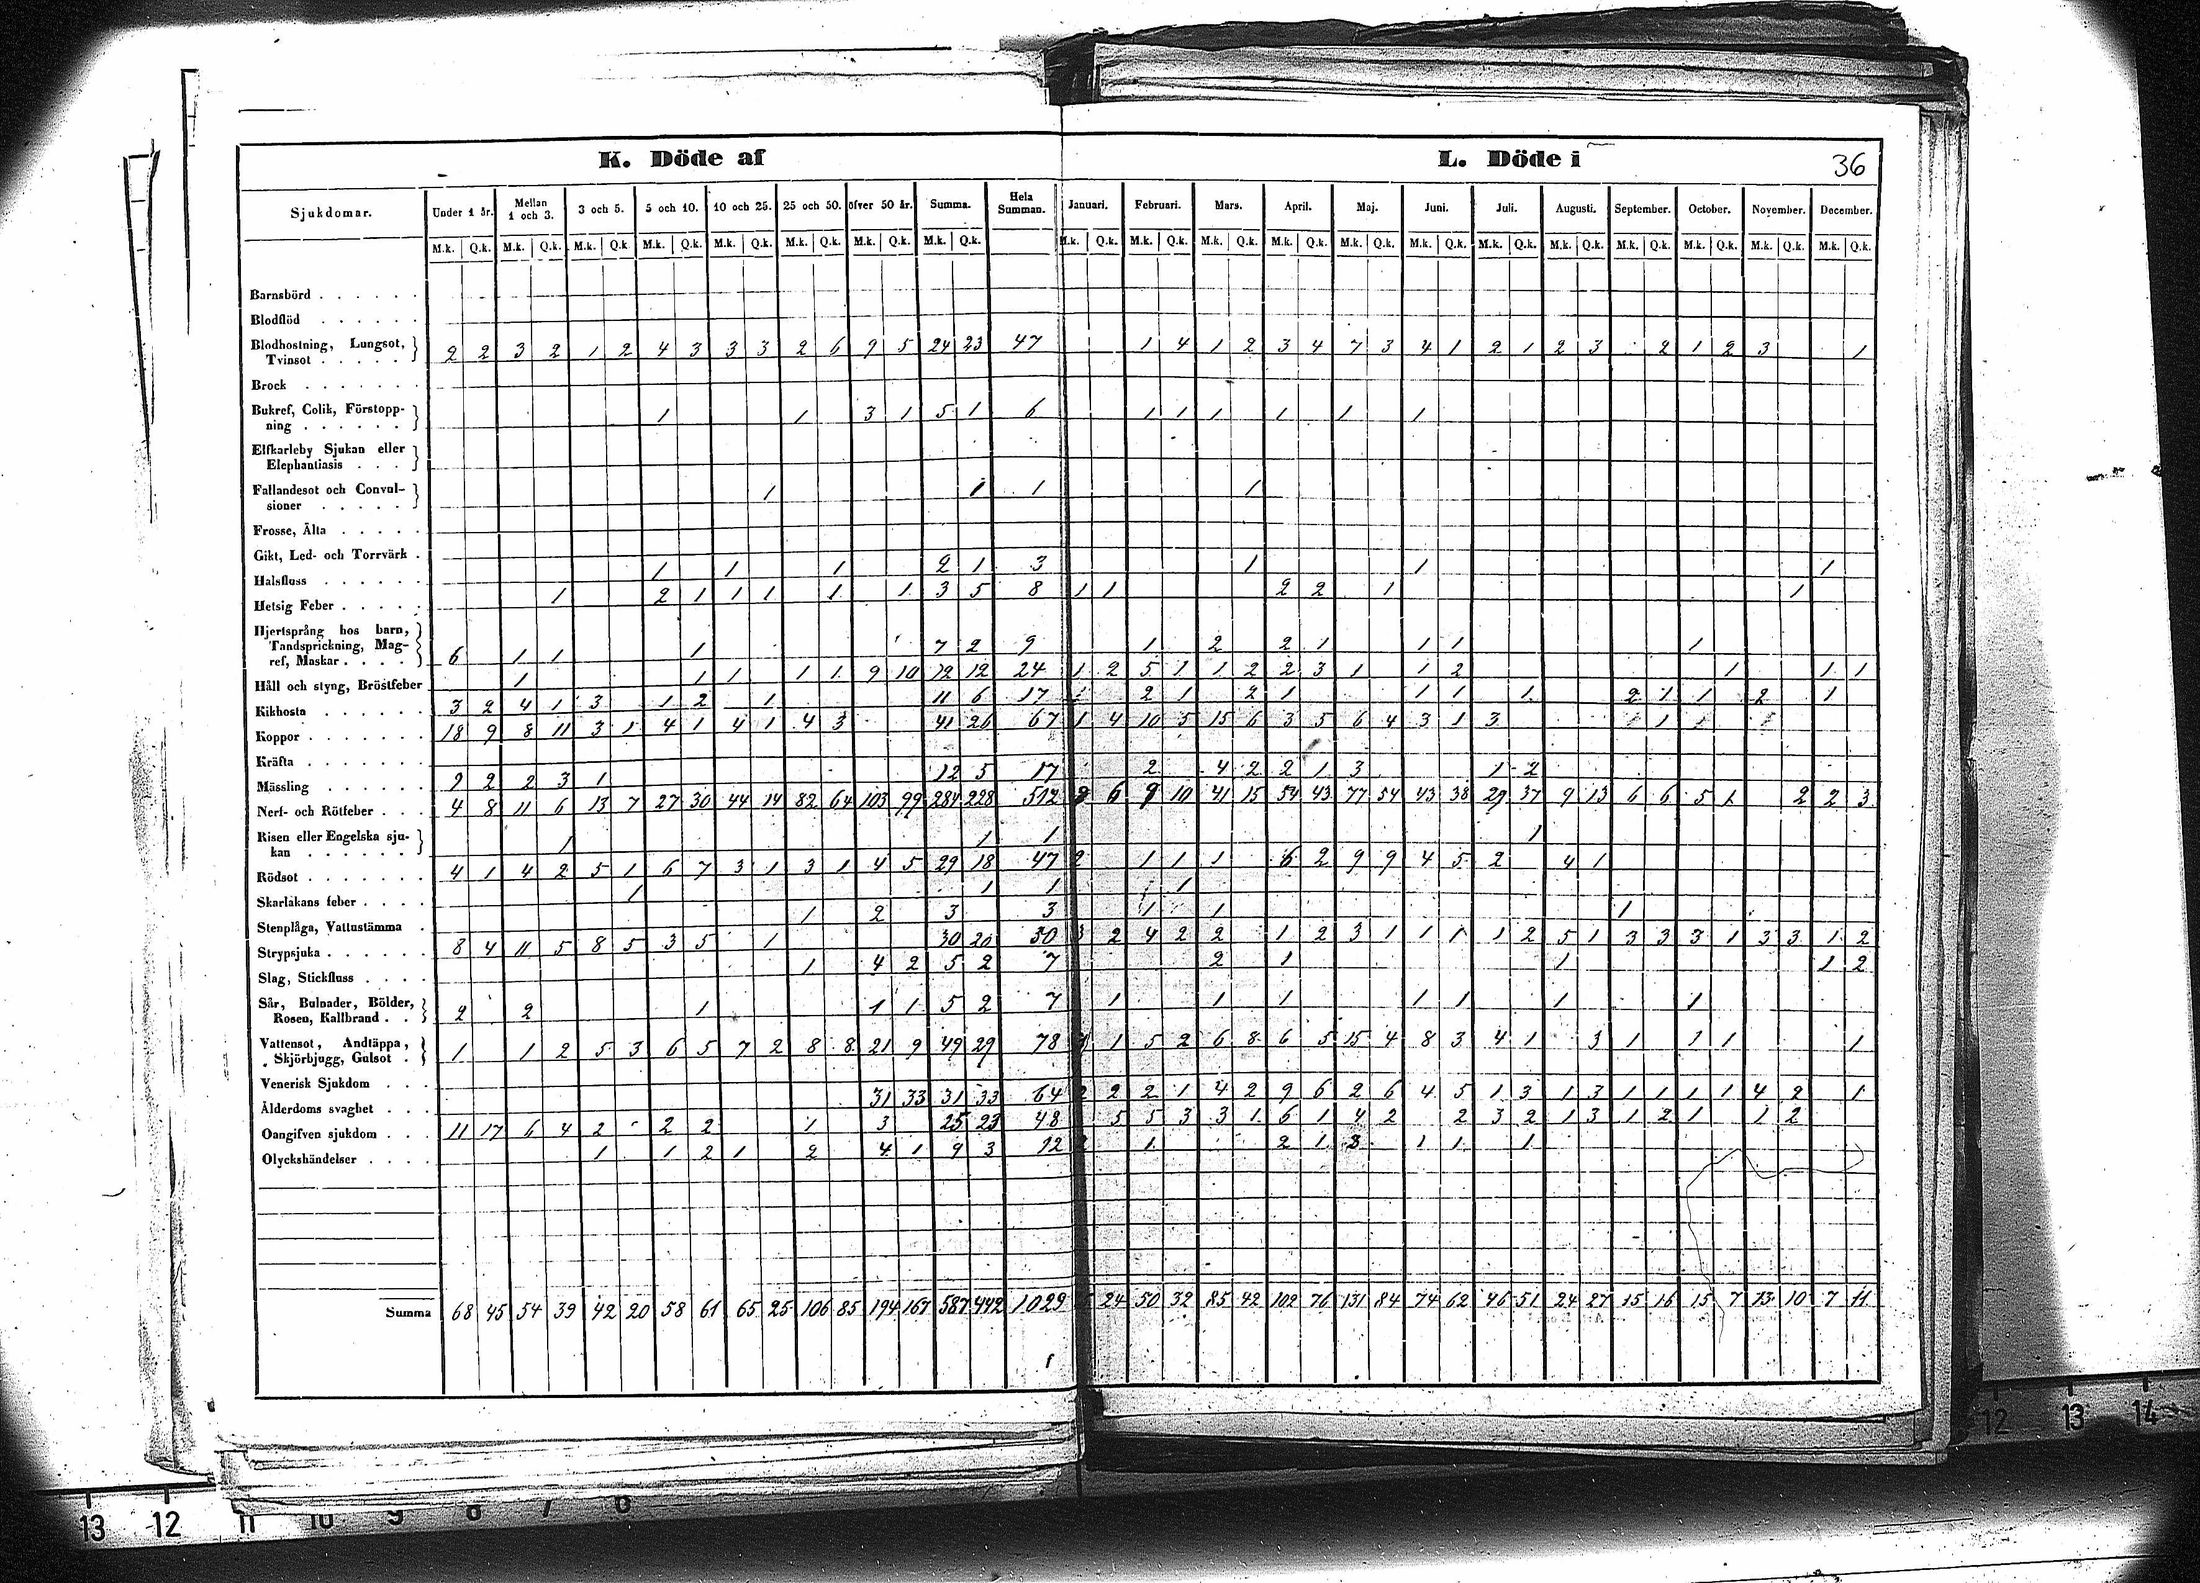 K. Döde af L. Döde i 36
Sjukdomar. Under 1 år. Mellan 1 och 3. 3 och 5. 5 och 10. 10 och 25. 25 och 50. öfver 50 år. Summa. Hela Summan. Januari. Februari. Mars. April. Maj. Juni. Juli. Augusti. September. October. November. December.
M.k. Q.k. M.k. Q.k. M.k. Q.k. M.k. Q.k. M.k. Q.k. M.k. Q.k. M.k. Q.k. M.k. Q.k. M.k. Q.k. M.k. Q.k. M.k. Q.k. M.k. Q.k. M.k. Q.k. M.k. Q.k. M.k. Q.k. M.k. Q.k. M.k. Q.k. M.k. Q.k. M.k. Q.k. M.k. Q.k.
Barnsbörd
Blodflöd
Blodhostning, Lungsot,
Tvinsot 2 2 3 2 1 2 4 3 3 3 2 6 9 5 24 23 47 1 4 1 2 3 4 7 3 4 1 2 1 2 3 2 1 2 3 1
Brock
Bukref, Colik, Förstopp-
ning 1 1 3 1 5 1 6 1 1 1 1 1 1
Elfkarleby Sjukan eller
Elephantiasis
Fallandesot och Convul-
sioner 1 1 1 1
Frosse, Älta
Gikt, Led- och Torrvärk
Halsfluss 1 1 1 2 1 3 1 1 1
Hetsig Feber 1 2 1 1 1 1 1 3 5 8 1 1 2 2 1 1
Hjertsprång hos barn,
Tandsprickning, Mag-
ref, Maskar 6 1 1 1 7 2 9 1 2 2 1 1 1 1
Håll och styng, Bröstfeber 1 1 1 1 1 9 10 12 12 24 1 2 5 1 1 2 2 3 1 1 2 1 1 1
Kikhosta 3 2 4 1 3 1 2 1 11 6 17 2 1 2 1 1 1 1 2 1 1 2 1
Koppor 18 9 8 11 3 1 4 1 4 1 4 3 41 26 67 1 4 10 5 15 6 3 5 6 4 3 1 3 1
Kräfta
Mässling 9 2 2 3 1 12 5 17 2 4 2 2 1 3 1 2
Nerf- och Rötfeber 4 8 11 6 13 7 27 30 44 14 82 64 103 99 284 228 512 6 9 10 41 15 54 43 77 54 43 38 29 37 9 13 6 6 5 1 2 2 3
Risen eller Engelska sju-
kan 1 1 1 1
Rödsot 4 1 4 2 5 1 6 7 3 1 3 1 4 5 29 18 47 2 1 1 1 6 2 9 9 4 5 2 4 1
Skarlakans feber 1 1 1 1
Stenplåga, Vattustämma 1 2 3 3 1 1 1
Strypsjuka 8 4 11 5 8 5 3 5 1 30 20 50 3 2 4 2 2 1 2 3 1 1 1 1 2 5 1 3 3 3 1 3 3 1 2
Slag, Stickfluss 1 4 2 5 2 7 2 1 1 1 2
Sår, Bulnader, Bölder,
Rosen, Kallbrand 2 2 1 1 1 5 2 7 1 1 1 1 1 1 1
Vattensot, Andtäppa,
Skjörbjugg, Gulsot 1 1 2 5 3 6 5 7 2 8 8 21 9 49 29 78 1 5 2 6 8 6 5 15 4 8 3 4 1 3 1 1 1 1
Venerisk Sjukdom
Ålderdoms svaghet 31 33 31 33 64 2 2 2 1 4 2 9 6 2 6 4 5 1 3 1 3 1 1 1 1 4 2 1
Oangifven sjukdom 11 17 6 4 2 2 2 1 3 25 23 48 5 5 3 3 1 6 1 4 2 2 3 2 1 3 1 2 1 1 2
Olyckshändelser 1 1 2 1 2 4 1 9 3 12 2 1 2 1 3 1 1 1
Summa 68 45 54 39 42 20 58 61 65 25 106 85 194 167 587 442 1029 24 50 32 85 42 102 76 131 84 74 62 46 51 24 27 15 16 15 7 13 10 7 11
12 13 14
13 12 11 10 9 8 7 6